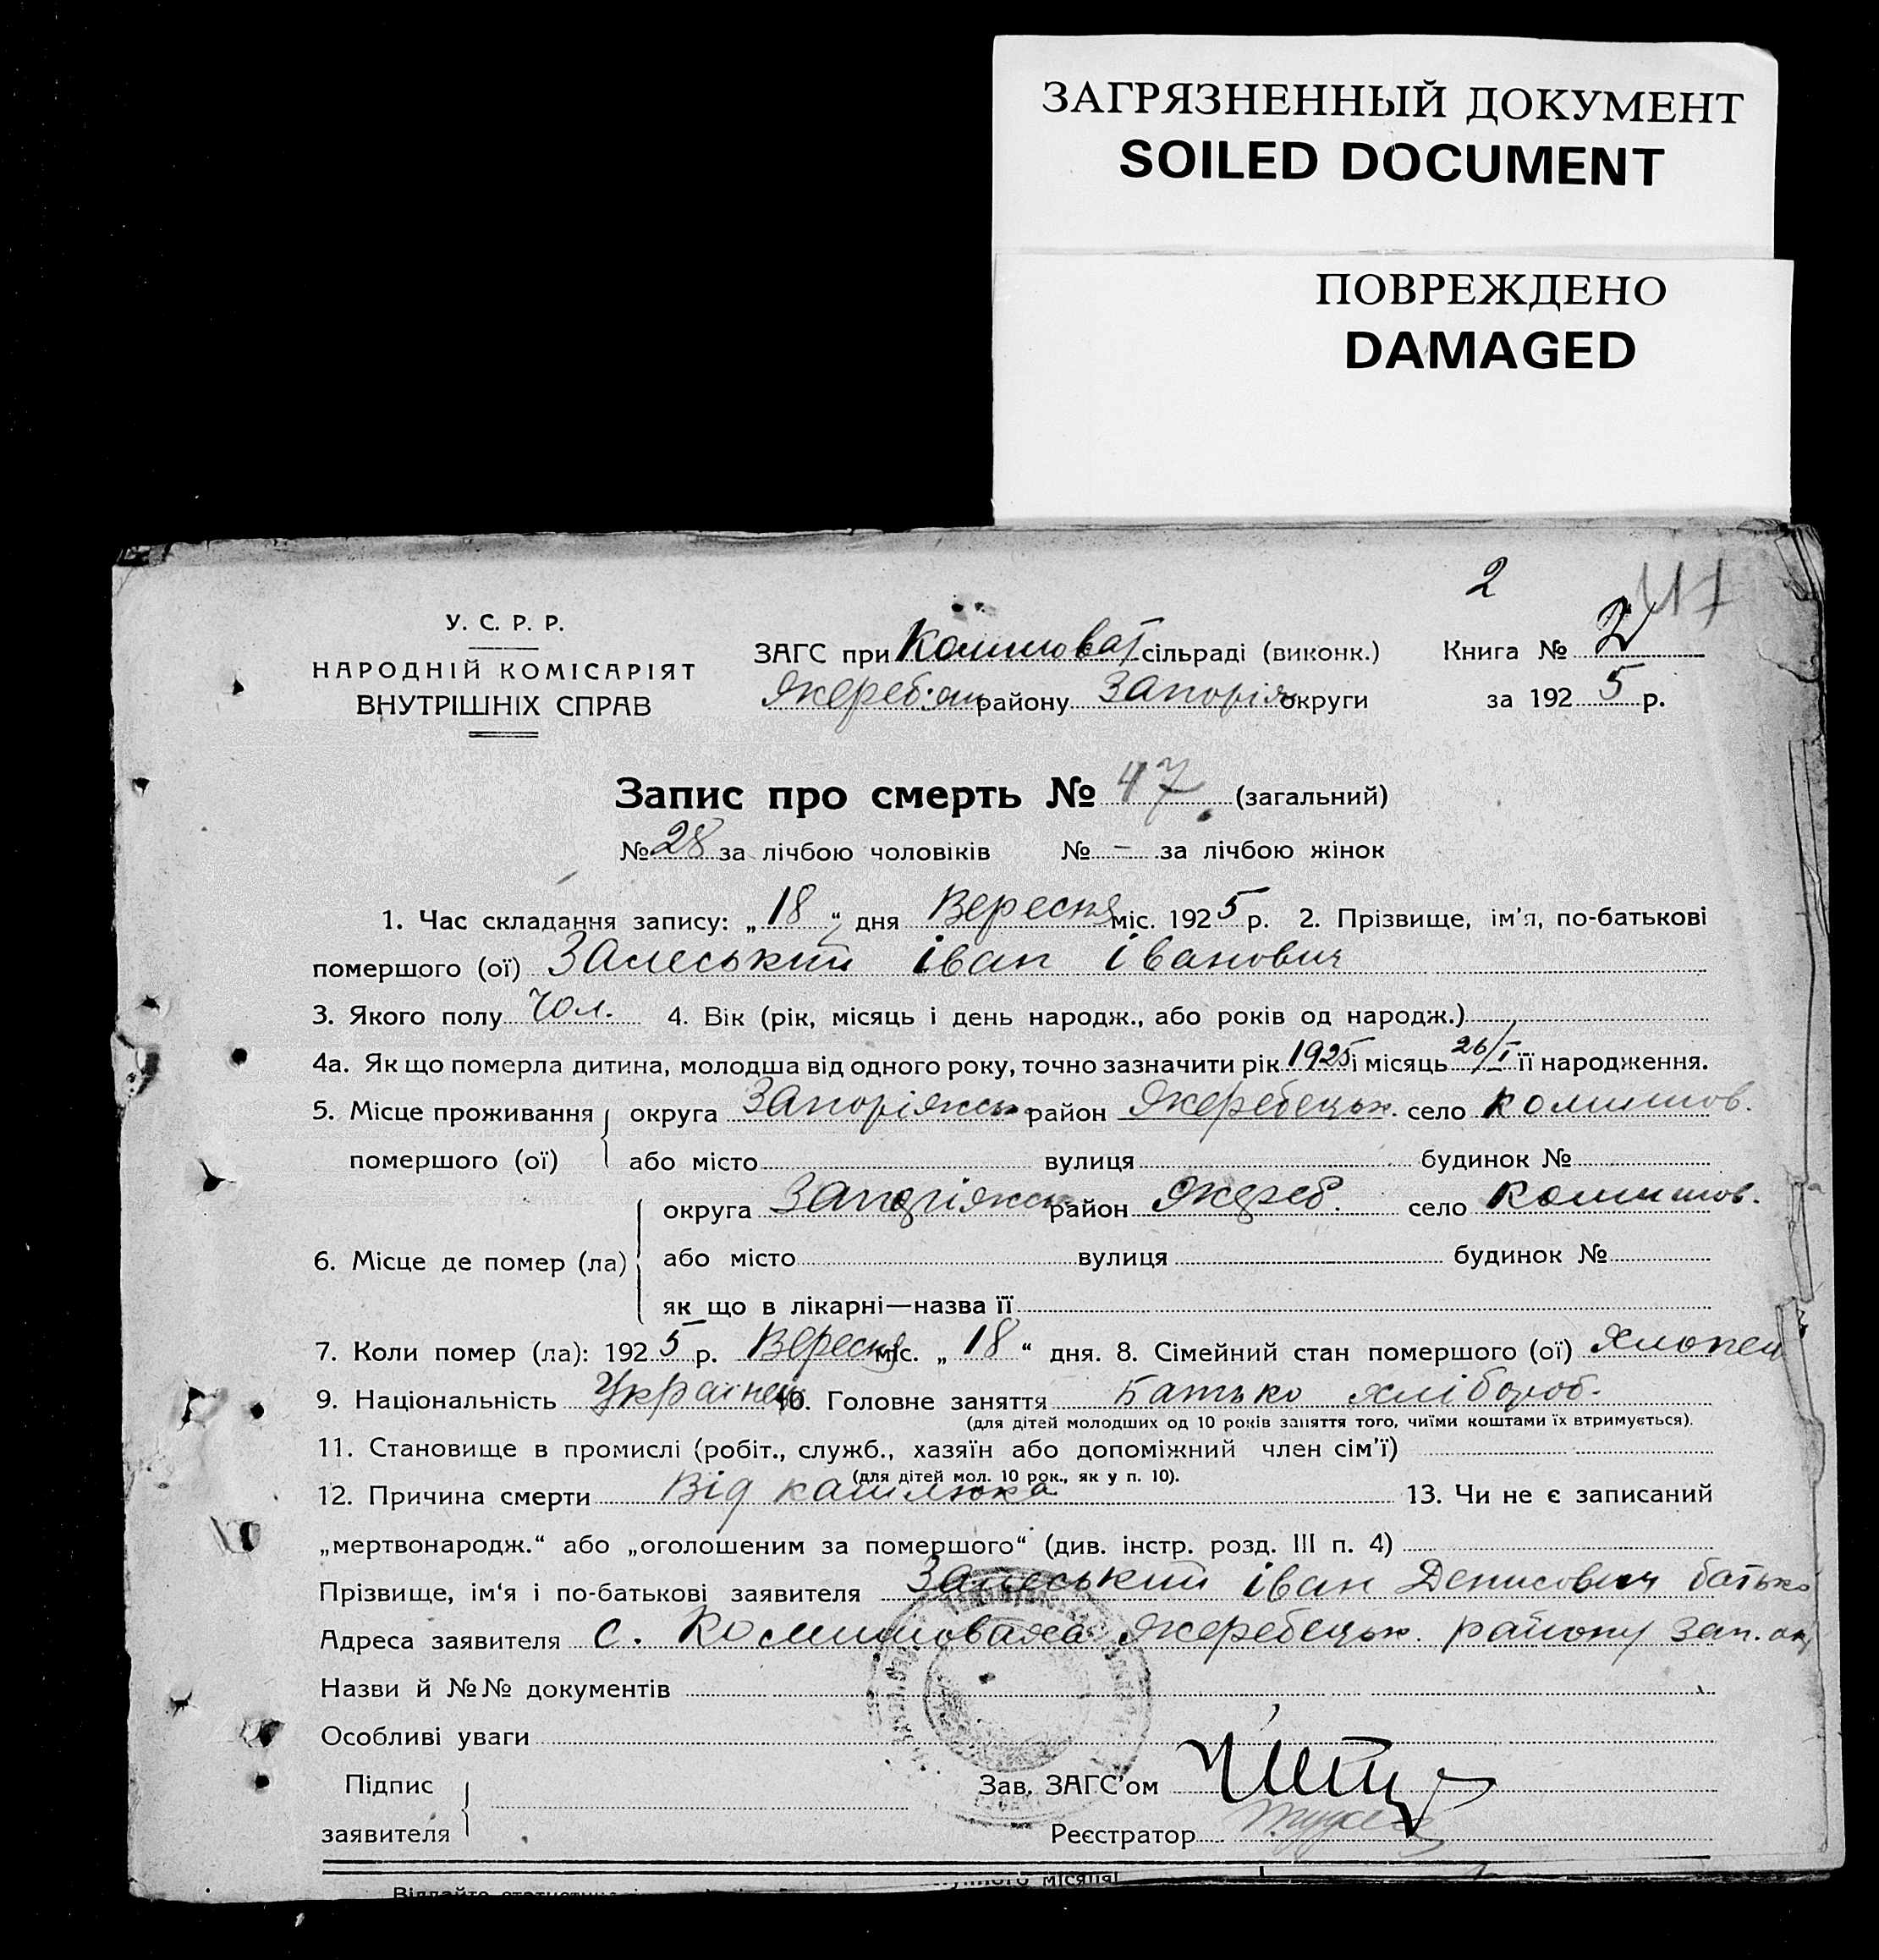 ЗАГРЯЗНЕННЫЙ ДОКУМЕНТ
SOILED DOCUMENT
ПОВРЕЖДЕНО
DAMAGED
2
У. С. Р. Р.
НАРОДНІЙ КОМІСАРІЯТ
ВНУТРІШНІХ СПРАВ
ЗАГС при Комишоват сільраді (виконк.) Книга № 2
району Запоріж округи за 1925 р.
Запис про смерть № 47 (загальний)
№ 28 за лічбою чоловіків № – за лічбою жінок
1. Час складання запису: „18“ дня Вересня міс. 1925 р. 2. Прізвище, ім'я, по-батькові
помершого (ої) Залеський Іван Іванович
3. Якого полу Чол. 4. Вік (рік, місяць і день народж., або років од народж.)
4а. Як що померла дитина, молодша від одного року, точно зазначити рік 1925 і місяць 26/I її народження.
5. Місце проживання округа Запоріжськ район Жеребецьк. село Комишов.
помершого (ої) або місто вулиця будинок №
округа Запоріжськ район Жереб. село Комишов.
6. Місце де помер (ла) або місто вулиця будинок №
як що в лікарні—назва її
7. Коли помер (ла): 1925 р. Вересня міс. „18“ дня. 8. Сімейний стан помершого (ої) Хлопец
9. Національність Українец 10. Головне заняття Батько хлібороб.
(для дітей молодших од 10 років заняття того, чиїми коштами їх втримується).
11. Становище в промислі (робіт., служб., хазяїн або допоміжний член сім'ї)
(для дітей мол. 10 рок., як у п. 10).
12. Причина смерти Від кашлюка 13. Чи не є записаний
„мертвонародж.“ або „оголошеним за помершого“ (див. інстр. розд. III п. 4)
Прізвище, ім'я і по-батькові заявителя Залеський Іван Денисович батько
Адреса заявителя с. Комишоваха Жеребецьк. району Зап. ок
Назви й №№ документів
Особливі уваги
Підпис
заявителя
Зав. ЗАГС'ом
Реєстратор